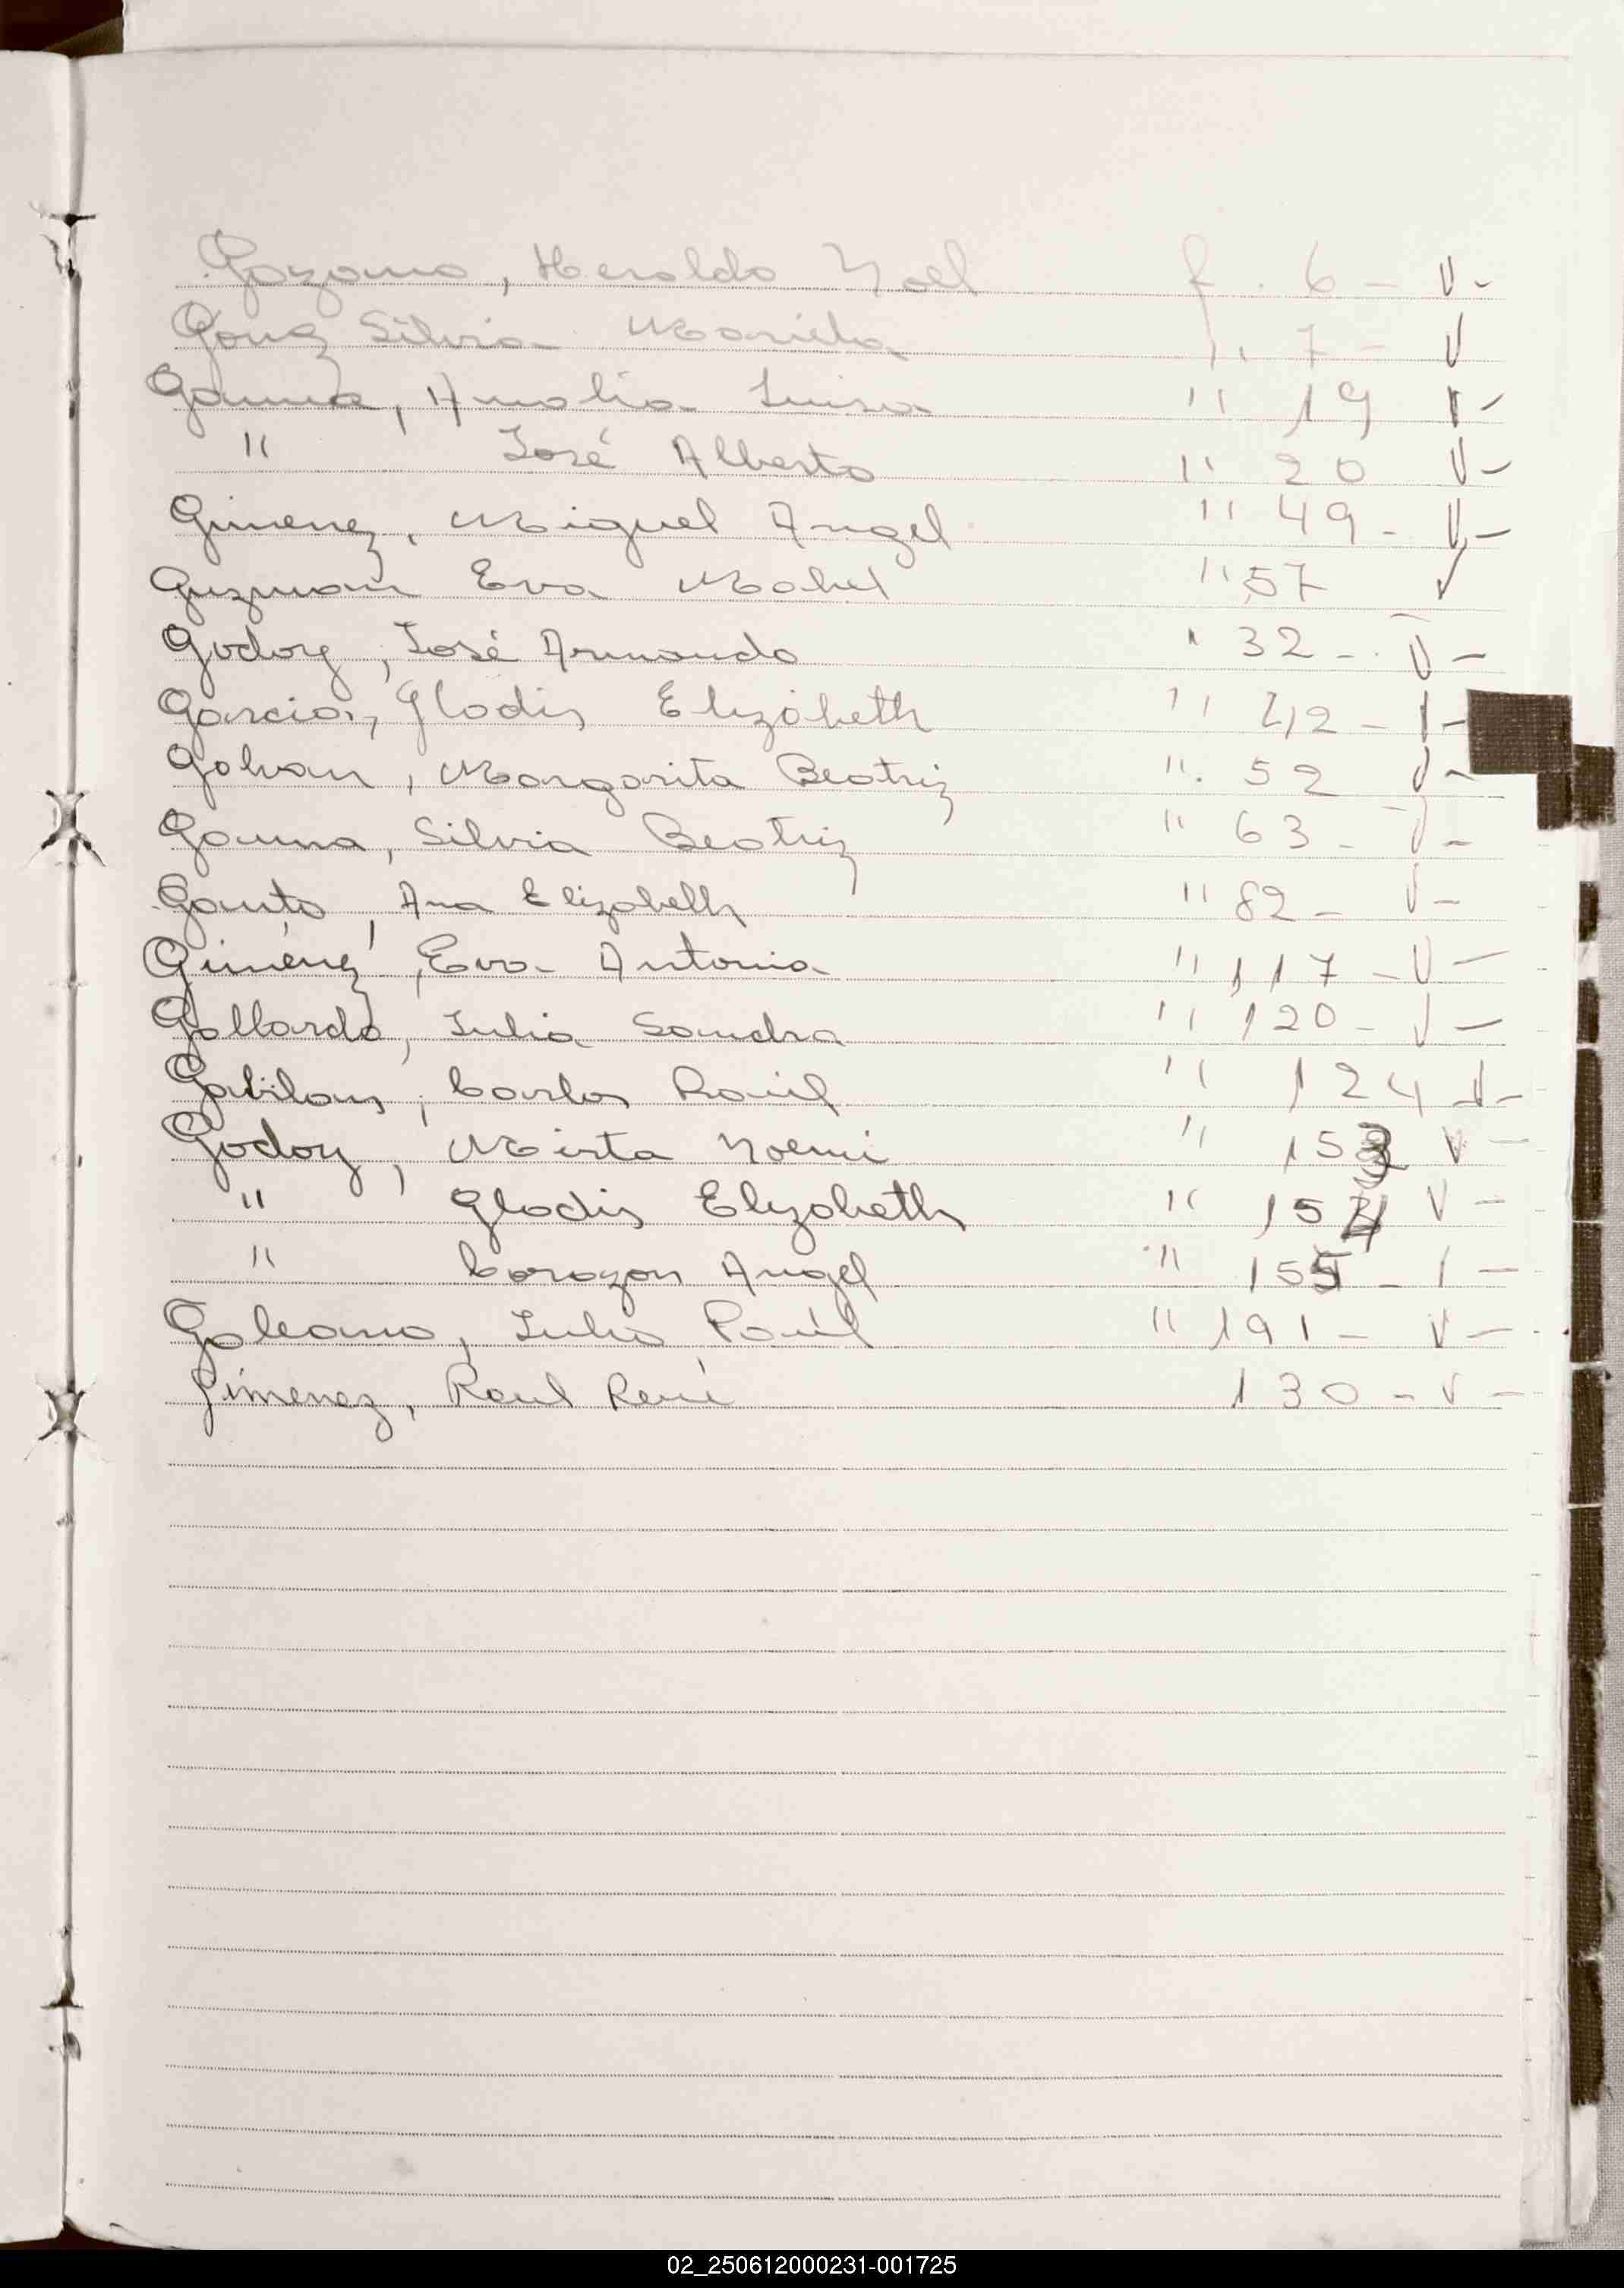 Gozano, Heraldo Noel f. 6 - V-
Gonz Silvia Mariela '' 7 - V
Gauna, Amalia Luisa '' 19 V-
'' José Alberto '' 20 V-
Gimenez, Miguel Angel '' 49 - V-
Guzman Eva Mabel '' 57 V
Godoy, José Armando '' 32 - V-
Garcia, Gladis Elizabeth '' 42 - V-
Galvan, Margarita Beatriz '' 52 V-
Gauna, Silvia Beatriz '' 63 - V-
Gauto, Ana Elizabeth '' 82 - V-
Gimenez, Eva Antonia '' 117 - V-
Gallardo, Julia Sandra '' 120 - V-
Gabilan, Carlos Raúl '' 124 V-
Godoy, Mirta Noemi '' 153 V-
'' Gladis Elizabeth '' 154 V-
'' Corazon Angel '' 155 - V-
Galeano, Julio Raúl '' 191 - V-
Gimenez, Raul René 130 - V-
02_250612000231-001725